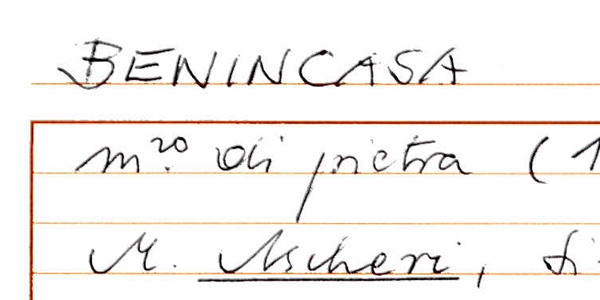 BENINCASA
m.ro di pietra (1
M. Ascheri,